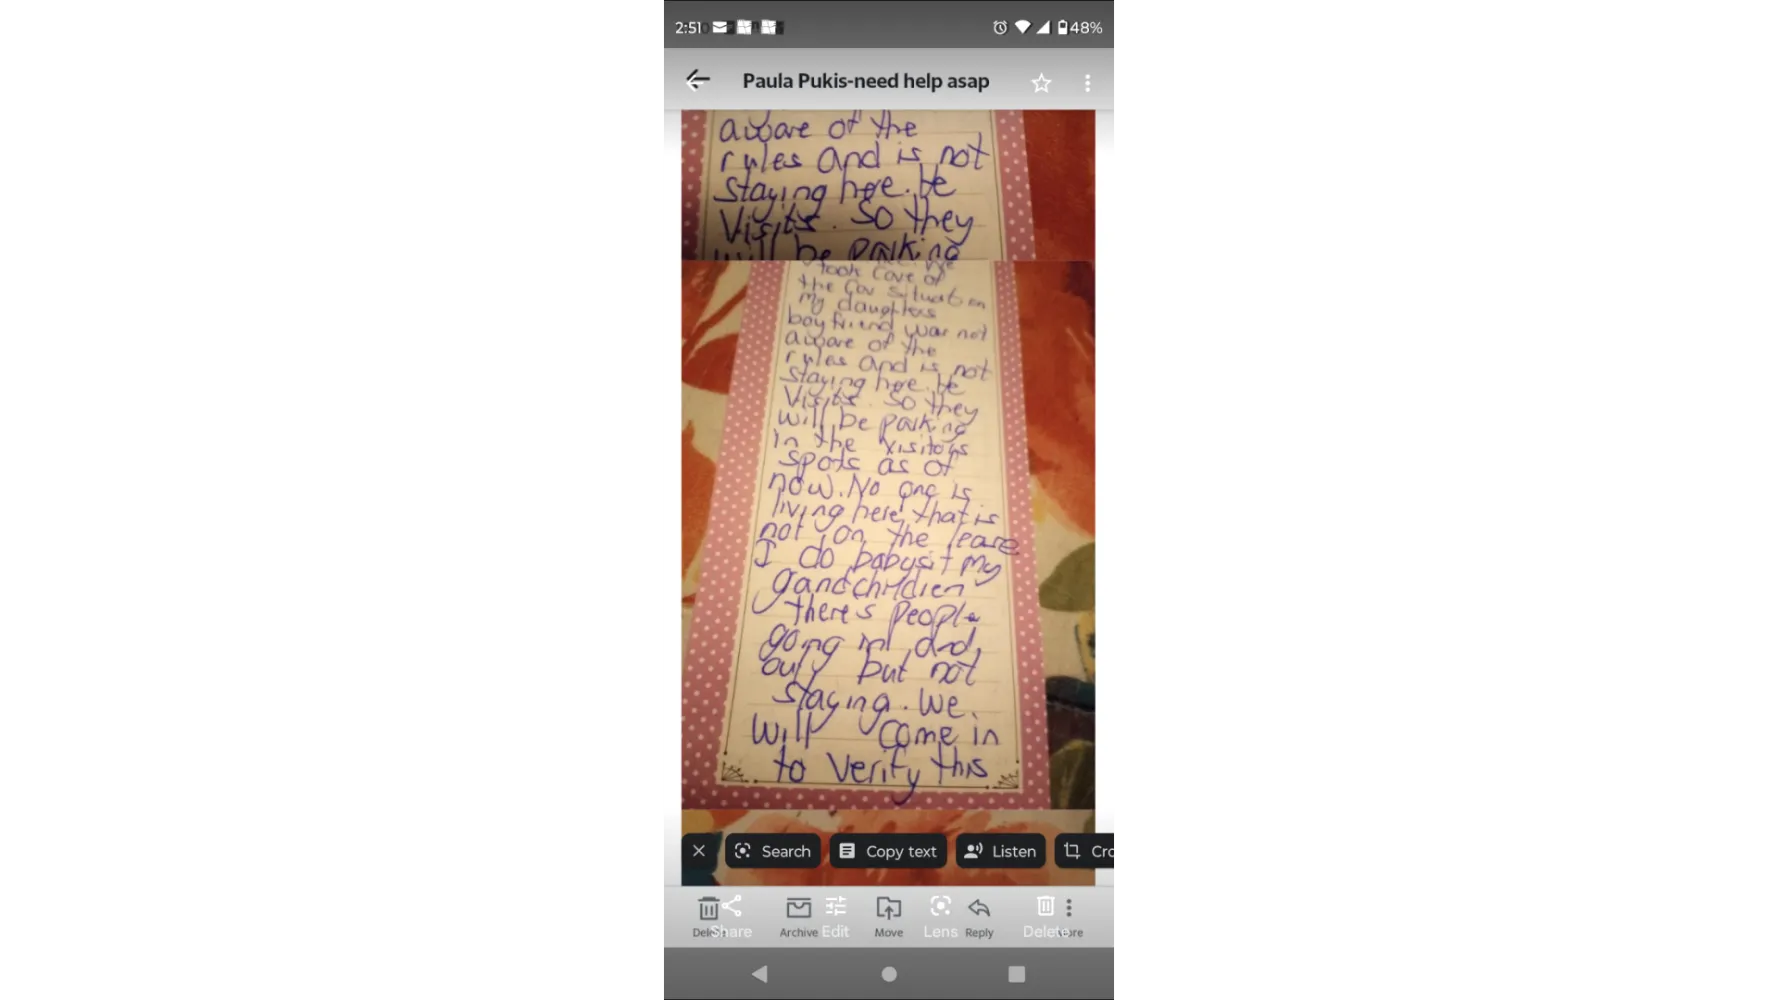 2:51
48%
Paula Pukis-need help asap
aware of the
rules and is not
staying here. he
Visits. So they
will be parking
took care of
the Car situation
My daughters
boyfriend was not
aware of the
rules and is not
staying here. he
Visits. So they
will be parking
in the visitors
spots as of
now. No one is
living here that is
not on the lease
I do babysit my
gandchildren
there's people
going in and
out, but not
staying. We
will come in
to verify this
Search
Copy text
Listen
Cro
Share
Archive
Edit
Move
Lens
Reply
Delete